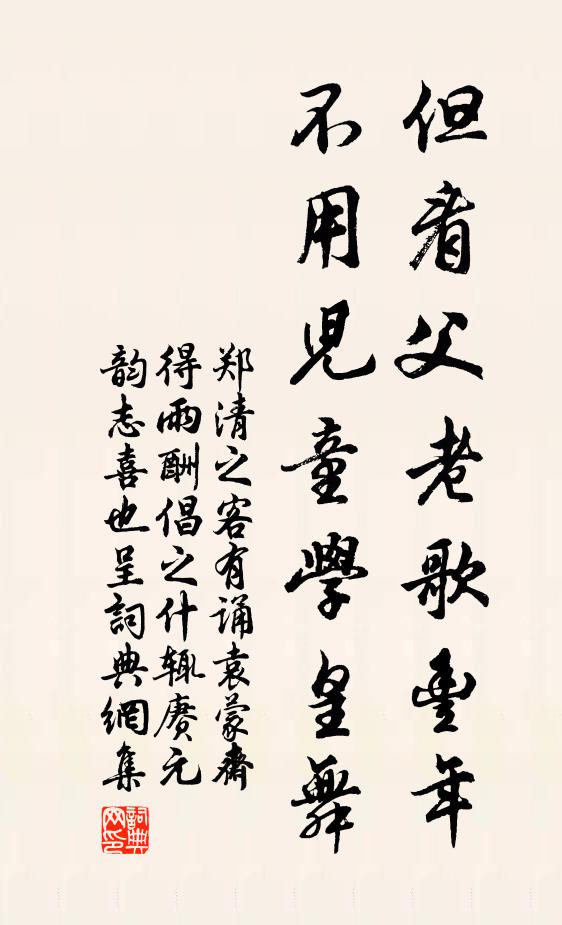 但看父老歌豐年
不用兒童學皇舞
郑清之客有诵袁蒙齋
得雨酬倡之什辄赓元
韵志喜也呈詞典網集
詞典
网印